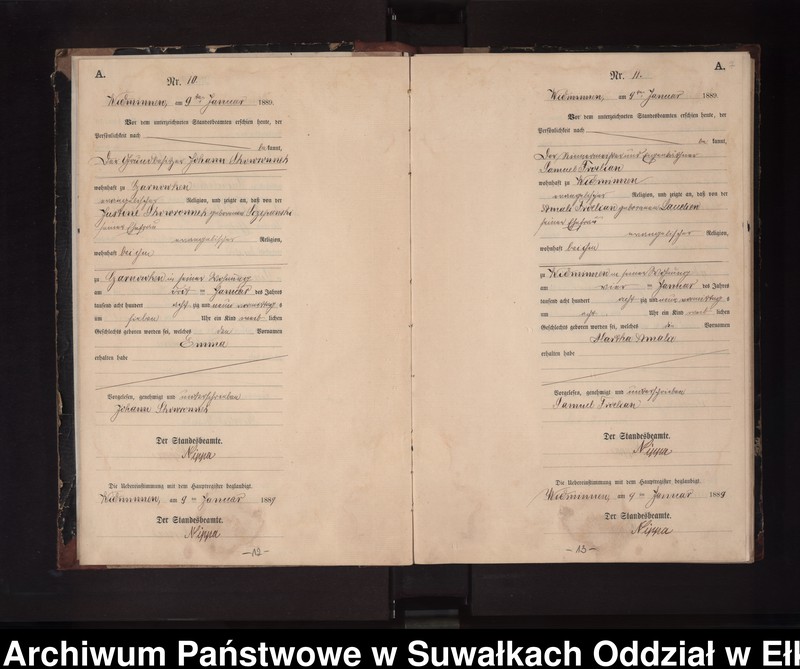 A.
Nr. 10.
Widminnen, am 9 ten Januar 1889.
Vor dem unterzeichneten Standesbeamten erschien heute, der
Persönlichkeit nach
bekannt,
Der Grundbesitzer Johann
wohnhaft zu
evangelischer Religion, und zeigte an, daß von der
geborenen
seiner Ehefrau
evangelischer Religion,
wohnhaft bei ihm
zu in seiner Wohnung
am Januar des Jahres
tausend acht hundert acht zig und neun vormittag s
um sieben Uhr ein Kind weib lichen
Geschlechts geboren worden sei, welches den Vornamen
Emma
erhalten habe
Vorgelesen, genehmigt und unterschrieben
Johann
Der Standesbeamte.
Nippa
Die Uebereinstimmung mit dem Hauptregister beglaubigt.
Widminnen, am 9 ten Januar 1889
Der Standesbeamte.
Nippa
—12—
A.
Nr. 11.
Widminnen, am 9 ten Januar 1889.
Vor dem unterzeichneten Standesbeamten erschien heute, der
Persönlichkeit nach
bekannt,
Der und
Samuel
wohnhaft zu Widminnen
evangelischer Religion, und zeigte an, daß von der
geborenen
seiner Ehefrau
evangelischer Religion,
wohnhaft bei ihm
zu Widminnen in seiner Wohnung
am vier ten Januar des Jahres
tausend acht hundert acht zig und neun vormittag s
um acht Uhr ein Kind weib lichen
Geschlechts geboren worden sei, welches die Vornamen
Martha Amalie
erhalten habe
Vorgelesen, genehmigt und unterschrieben
Samuel
Der Standesbeamte.
Nippa
Die Uebereinstimmung mit dem Hauptregister beglaubigt.
Widminnen, am 9 ten Januar 1889
Der Standesbeamte.
Nippa
—13—
Archiwum Państwowe w Suwałkach Oddział w Eł